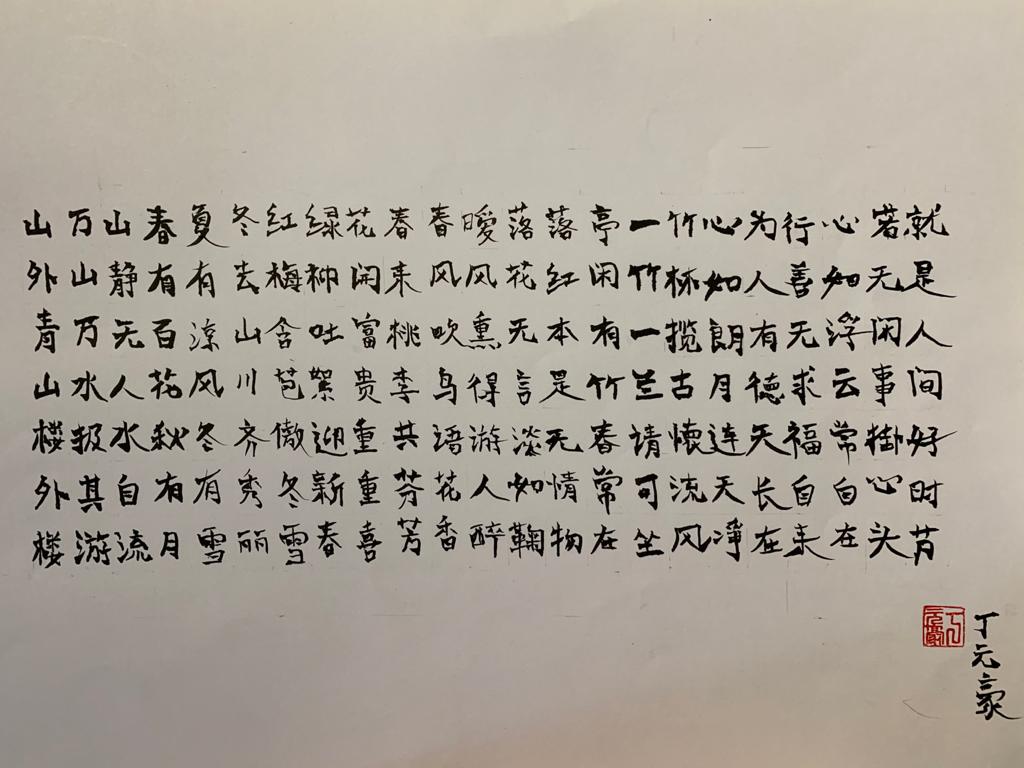 山外青山楼外楼
万山万水极其游
山静无人水自流
春有百花秋有月
夏有凉风冬有雪
冬去山川齐秀丽
红梅含苞傲冬雪
绿柳吐絮迎新春
花闲富贵重重喜
春来桃李共芬芳
春风吹鸟语花香
曖风熏得游人醉
落花无言淡如鞠
落红本是无情物
亭闲有竹春常在
一竹一兰请可坐
竹林揽古怀流风
心如朗月连天净
为人有德天长在
行善无求福自来
心如浮云常自在
若无闲事掛心头
就是人间好时节
丁元豪